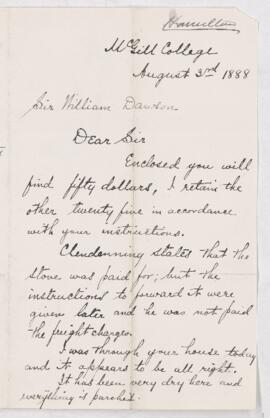 Hamilton
McGill College
August 3rd 1888
Sir William Dawson
Dear Sir
Enclosed you will
find fifty dollars, I retain the
other twenty five in accordance
with your instructions.
Clendenning states that the
stove was paid for; but the
instructions to forward it were
given later and he was not paid
the freight charges.
I was through your house today
and it appears to be all right.
It has been very dry here and
everything is parched.